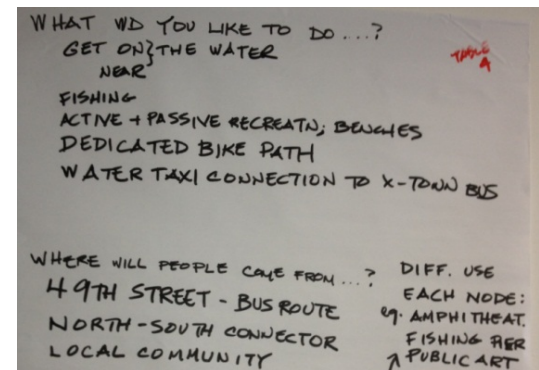 WHAT WD YOU LIKE TO DO...?
GET ON } THE WATER
NEAR
TABLE
4
FISHING
ACTIVE + PASSIVE RECREATN; BENCHES
DEDICATED BIKE PATH
WATER TAXI CONNECTION TO X-TOWN BUS
WHERE WILL PEOPLE COME FROM...?
49TH STREET - BUS ROUTE
NORTH-SOUTH CONNECTOR
LOCAL COMMUNITY
DIFF. USE
EACH NODE:
eg. AMPHITHEAT.
FISHING PIER
↗ PUBLIC ART